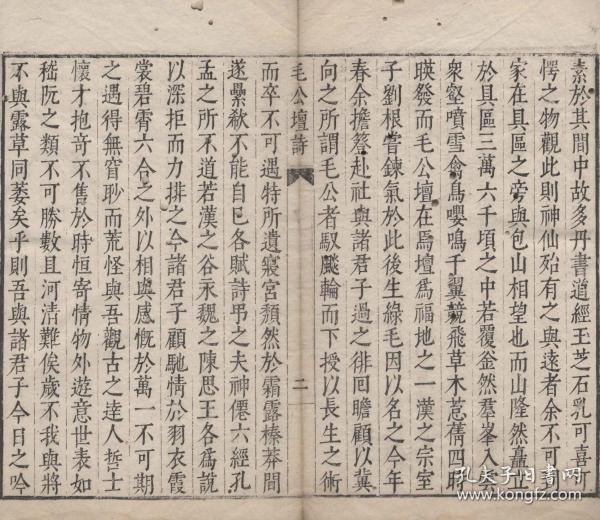 素於其間中故多丹書道經玉芝石乳可喜可
愕之物觀此則神仙殆有之與遠者余不可
家在具區之旁與包山相望也而山隆然矗立
於具區三萬六千頃之中若覆釜然羣峯入雲
衆壑噴雪禽鳥嚶鳴千翼競飛草木蔥蒨四時
暎發而毛公壇在焉壇爲福地之一漢之宗室
子劉根嘗鍊氣於此後生綠毛因以名之今年
春余擔簦赴社與諸君子過之徘徊瞻顧以冀
向之所謂毛公者馭飈輪而下授以長生之術
毛公壇詩
二
而卒不可遇特所遺寢宮頹然於霜露榛莽間
遂纍欷不能自已各賦詩弔之夫神僊六經孔
孟之所不道若漢之谷永魏之陳思王各爲說
以深拒而力排之今諸君子顧馳情於羽衣霞
裳碧霄六合之外以相與感慨於萬一不可期
之遇得無窅眇而荒怪與吾觀古之達人哲士
懷才抱奇不售於時恒寄情物外遊意世表如
嵇阮之類不可勝數且河清難俟歲不我與將
不與露草同萎矣乎則吾與諸君子今日之吟
孔夫子旧书网
www.kongfz.com